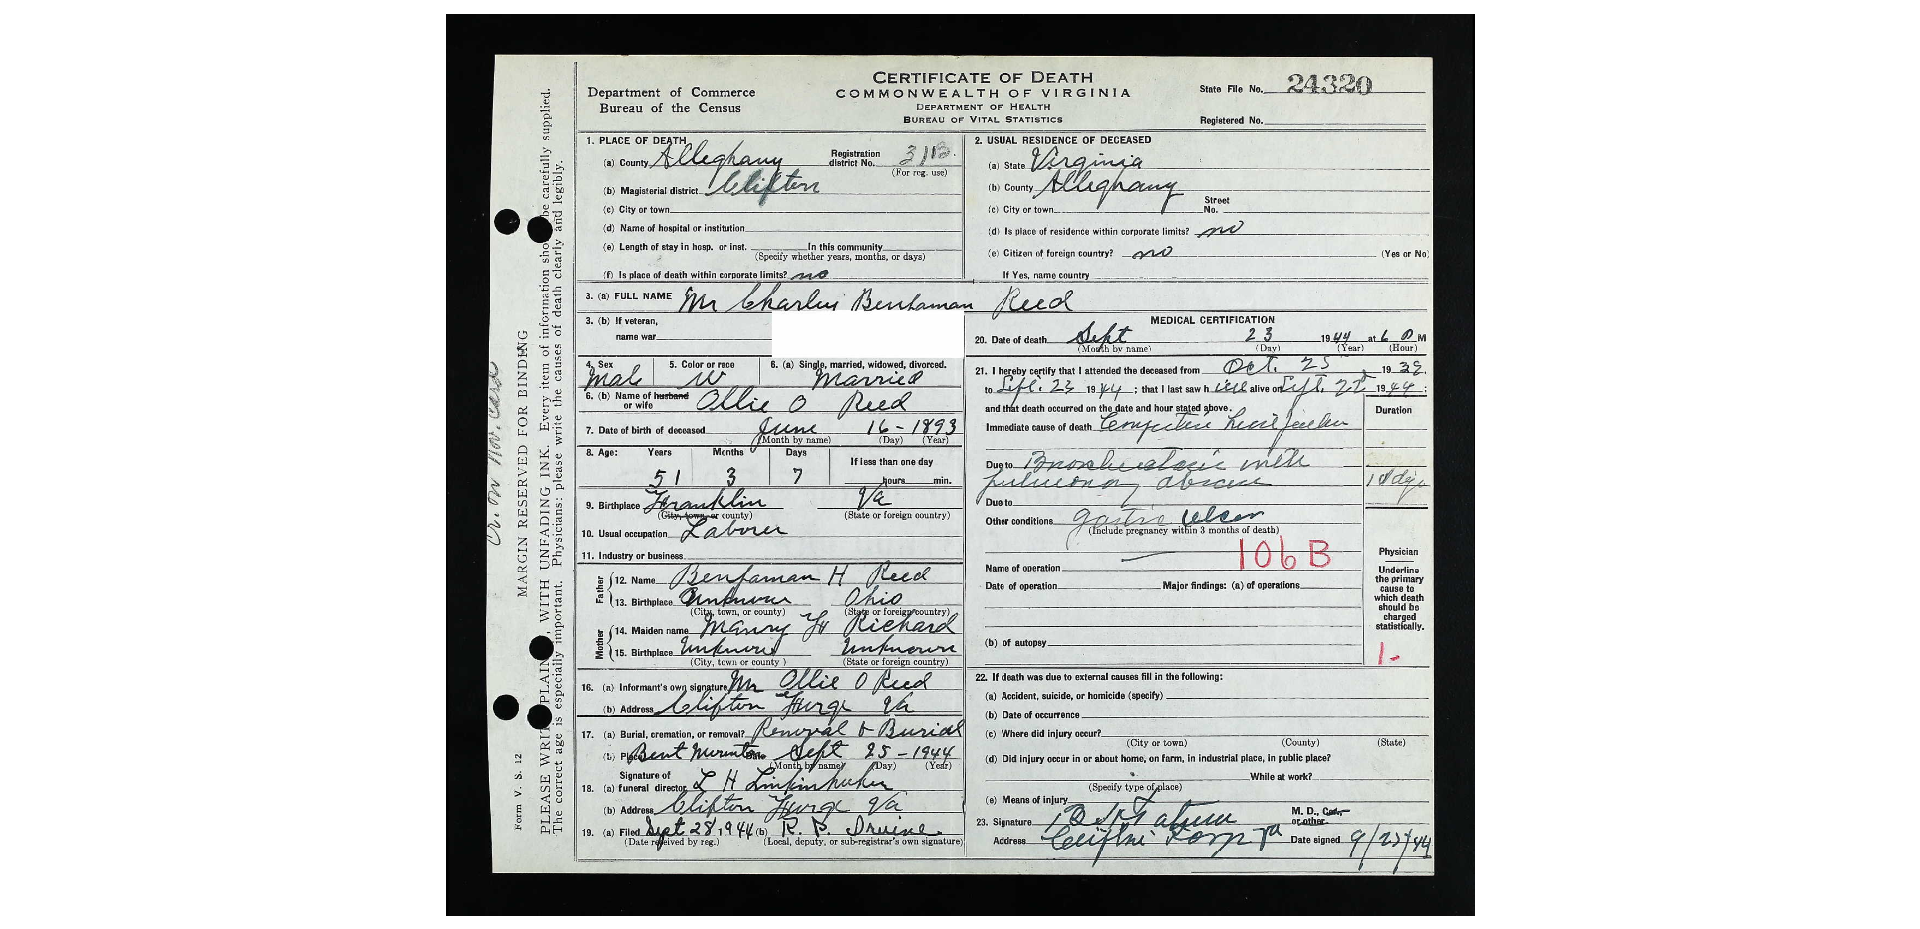 CERTIFICATE OF DEATH
COMMONWEALTH OF VIRGINIA
DEPARTMENT OF HEALTH
BUREAU OF VITAL STATISTICS
Department of Commerce
Bureau of the Census
State File No. 24320
Registered No.
1. PLACE OF DEATH
(a) County Alleghany Registration district No. 311B.
(For reg. use)
(b) Magisterial district Clifton
(c) City or town
(d) Name of hospital or institution
(e) Length of stay in hosp. or inst. In this community
(Specify whether years, months, or days)
(f) Is place of death within corporate limits? no
2. USUAL RESIDENCE OF DECEASED
(a) State Virginia
(b) County Alleghany
(c) City or town Street No.
(d) Is place of residence within corporate limits? no
(e) Citizen of foreign country? no (Yes or No)
If Yes, name country
3. (a) FULL NAME Mr Charles Benjaman Reed
3. (b) If veteran,
name war
4. Sex 5. Color or race 6. (a) Single, married, widowed, divorced.
Male W Married
6. (b) Name of husband or wife Ollie O Reed
7. Date of birth of deceased June 16 - 1893
(Month by name) (Day) (Year)
8. Age: Years Months Days If less than one day
51 3 7 hours min.
9. Birthplace Franklin Va
(City, town, or county) (State or foreign country)
10. Usual occupation Laborer
11. Industry or business
Father
12. Name Benjaman H Reed
13. Birthplace Unknown Ohio
(City, town, or county) (State or foreign country)
Mother
14. Maiden name Richard
15. Birthplace Unknown Unknown
(City, town or county) (State or foreign country)
16. (a) Informant's own signature Mr Ollie O Reed
(b) Address Clifton Forge Va
17. (a) Burial, cremation, or removal? Removal & Burial
(b) Place Bent Mountain Date Sept 25 - 1944
(Month by name) (Day) (Year)
18. Signature of
(a) funeral director L H
(b) Address Clifton Forge Va
19. (a) Filed Sept 28, 1944 (b) R. P. Irvine
(Date received by reg.) (Local, deputy, or sub-registrar's own signature)
MEDICAL CERTIFICATION
20. Date of death Sept 23 1944 at 6 M
(Month by name) (Day) (Year) (Hour)
21. I hereby certify that I attended the deceased from Oct. 25, 19
to Sept. 23 1944; that I last saw h alive on Sept. 22 1944;
and that death occurred on the date and hour stated above.
Duration
Immediate cause of death
Due to with
pulmonary abscess
Due to
Other conditions gastric ulcer
(Include pregnancy within 3 months of death)
106B
Name of operation
Date of operation Major findings: (a) of operations
(b) of autopsy
Physician
Underline
the primary
cause to
which death
should be
charged
statistically.
1-
22. If death was due to external causes fill in the following:
(a) Accident, suicide, or homicide (specify)
(b) Date of occurrence
(c) Where did injury occur?
(City or town) (County) (State)
(d) Did injury occur in or about home, on farm, in industrial place, in public place?
While at work?
(Specify type of place)
(e) Means of injury
23. Signature M. D., Cor., or other
Address Clifton Forge Va Date signed 9/23/44
Form V. S. 12
MARGIN RESERVED FOR BINDING
PLEASE WRITE PLAINLY, WITH UNFADING INK. Every item of information should be carefully supplied.
The correct age is especially important. Physicians: please write the causes of death clearly and legibly.